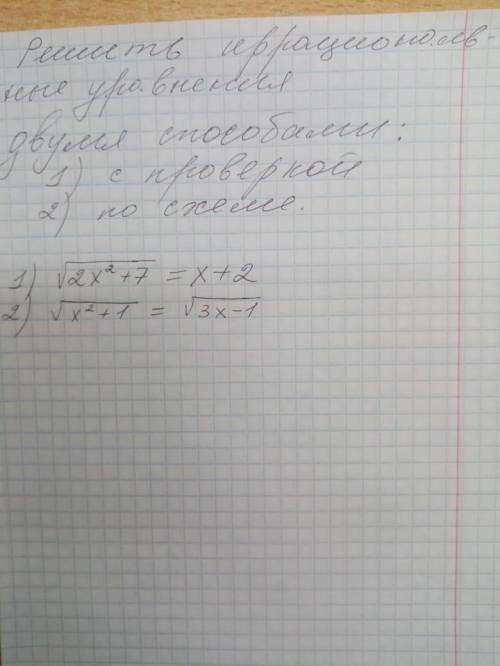 Решить иррациональ-
ные уравнения
двумя способами:
1) с проверкой
2) по схеме.
1) √2x²+7 = x+2
2) √x²+1 = √3x-1